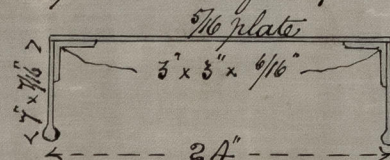 5/16 plate
3" x 3" x 6/16"
7" x 7/16"
24"